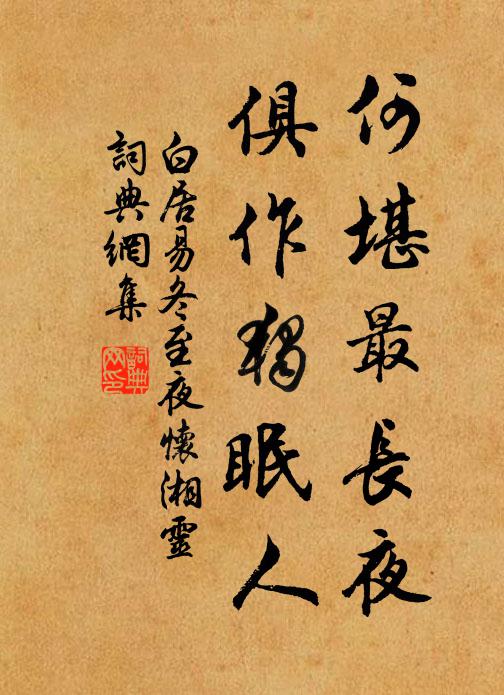 何堪最長夜
俱作獨眠人
白居易冬至夜懷湘靈
詞典網集
詞典网印